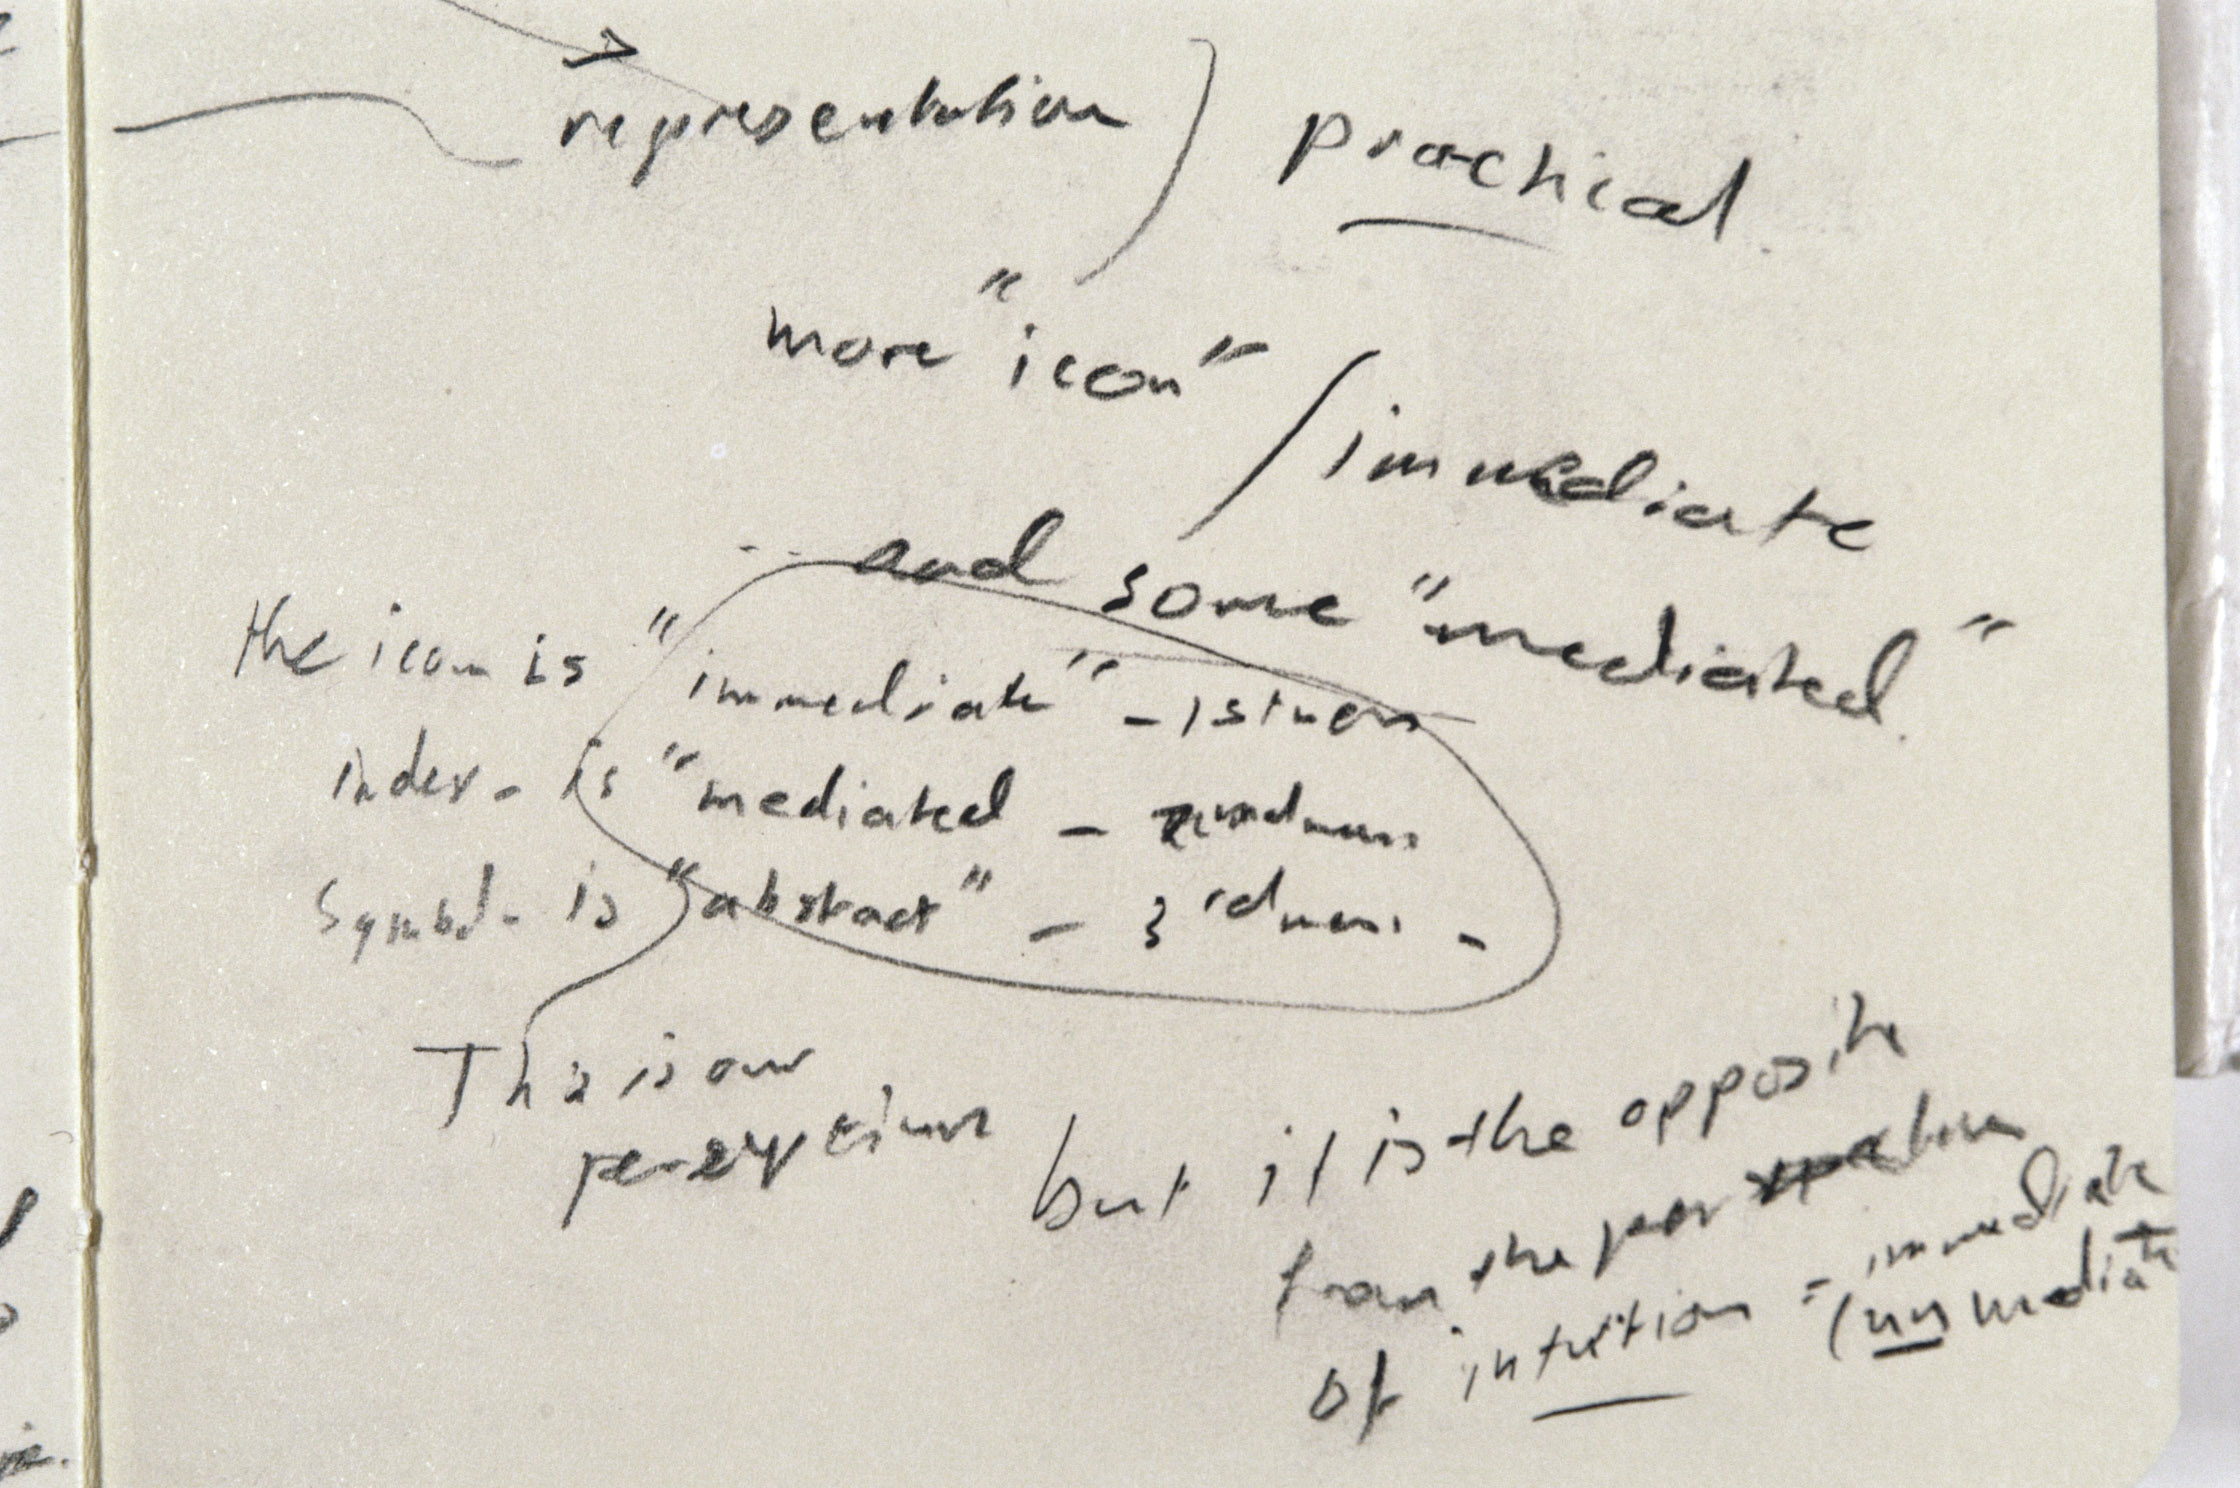 representation
practical
more "icon"
immediate
and some "mediated"
the icon is "immediate" - 1stness
index - is "mediated - 2ndness
Symbol - is "abstract" - 3rdness -
This is our
perceptions
but it is the opposite
from the
of intuition = immediate
(unmediate